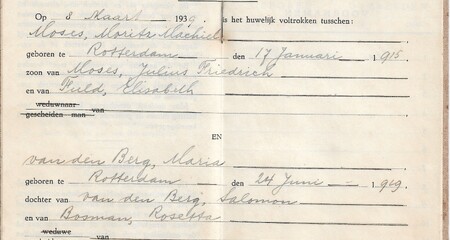 Op 8 Maart 1939. is het huwelijk voltrokken tusschen:
Moses, Moritz Machiel
geboren te Rotterdam den 17 Januari 1915
zoon van Moses, Julius Friedrich
en van Fuld, Elisabeth
weduwnaar van
gescheiden man
EN
van den Berg, Maria
geboren te Rotterdam den 24 Juni 1919.
dochter van van den Berg, Salomon
en van Bosman, Rosetta
weduwe van